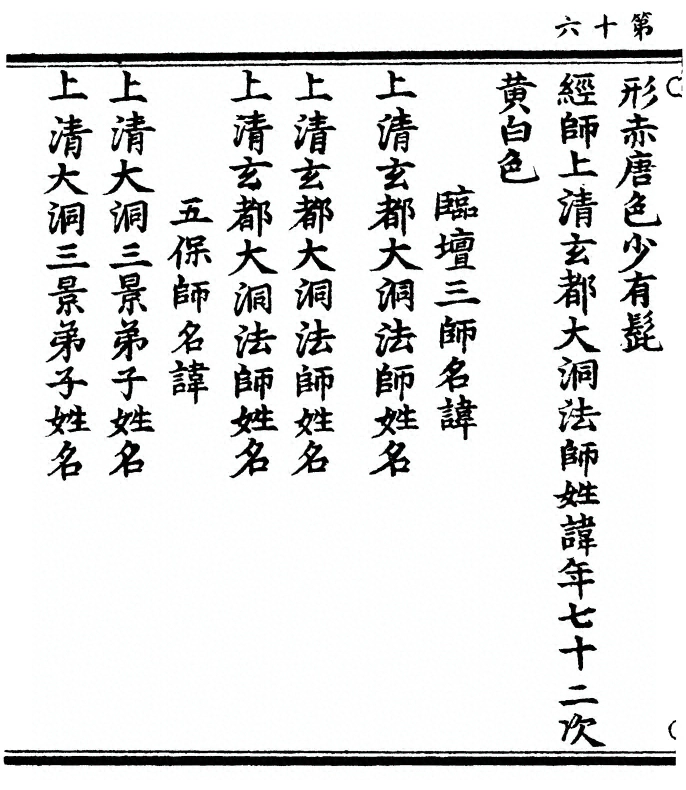 第十六
形赤唐色少有髭
經師上清玄都大洞法師姓諱年七十二次
黄白色
臨壇三師名諱
上清玄都大洞法師姓名
上清玄都大洞法師姓名
上清玄都大洞法師姓名
五保師名諱
上清大洞三景弟子姓名
上清大洞三景弟子姓名